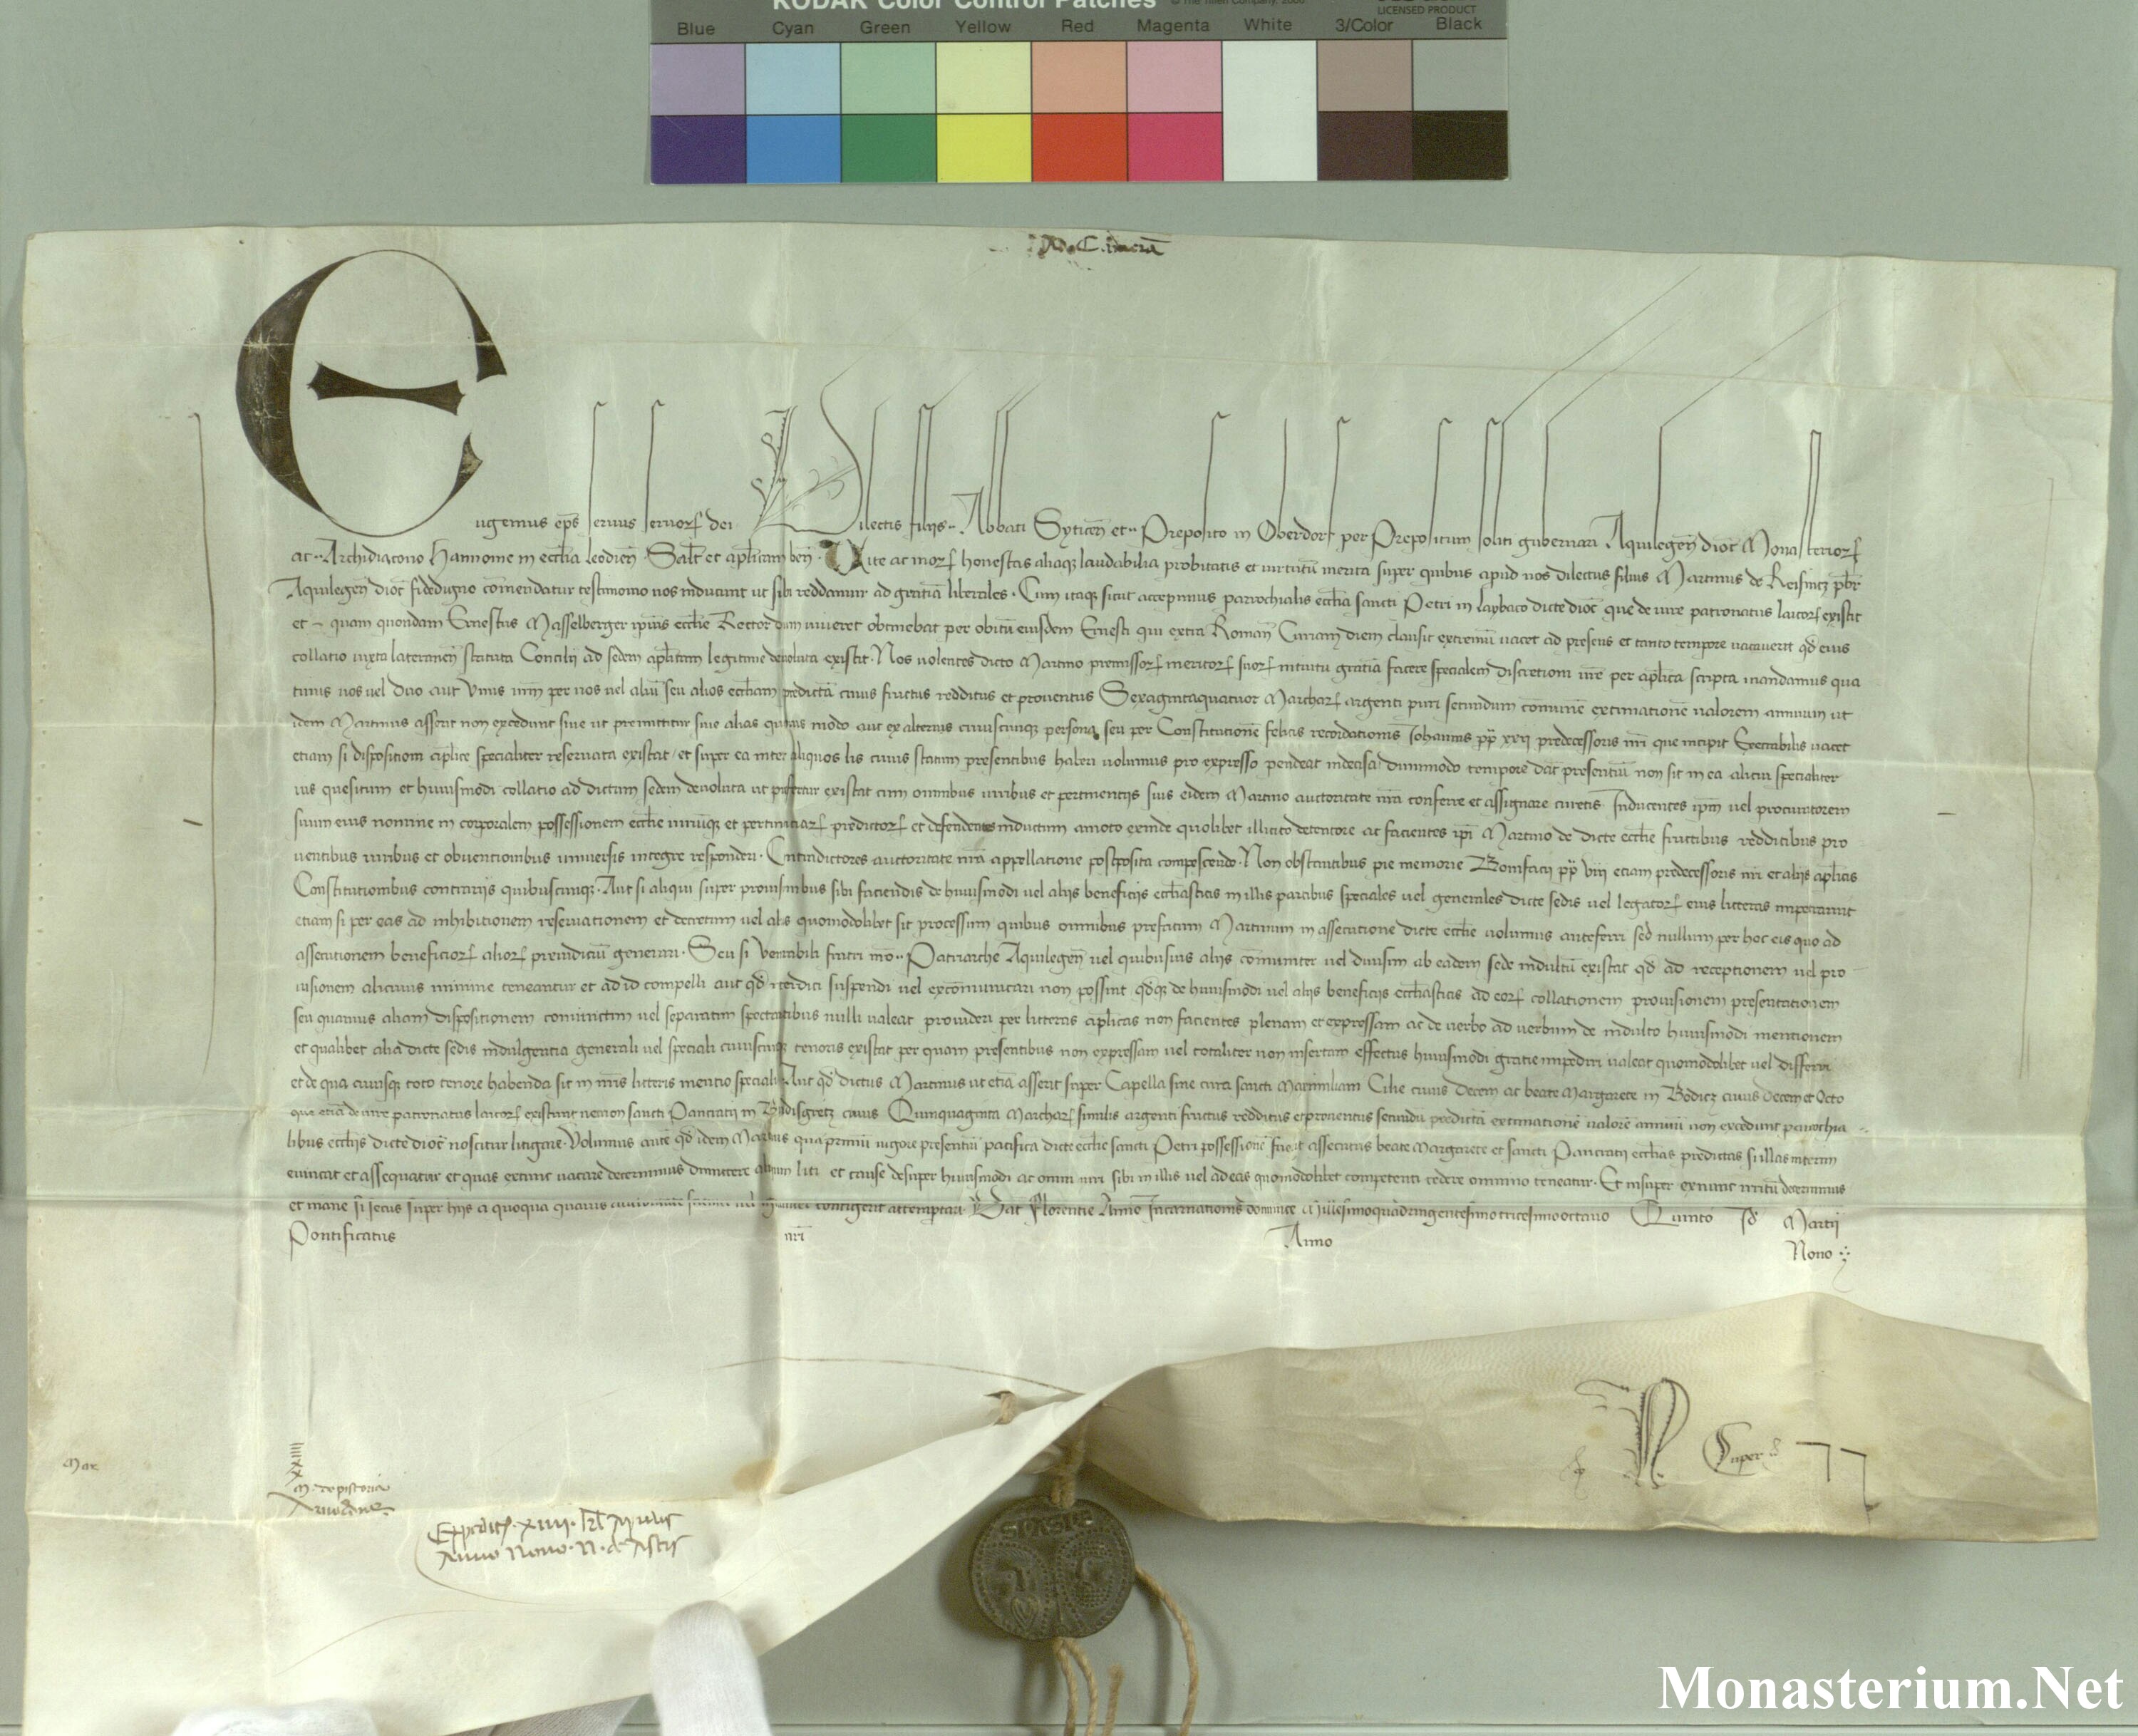 KODAK Color Control Patches © The Tiffen Company, 2000
LICENSED PRODUCT
Blue Cyan Green Yellow Red Magenta White 3/Color Black
Eugenius ep̄s seruus seruorꝝ dei Dilectis filijs ·· Abbati Syticeñ et ·· Preposito in Oberdorf per Prepositum soliti gubernari Aquilegeñ dioc̄ Monasteriorꝝ
ac ·· Archidiacono Hannonie in eccl̄ia Leodieñ Salt̄ et apl̄icam beñ · Vite ac morꝝ honestas aliaqꝫ laudabilia probitatis et uirtutū merita super quibus apud nos dilectus filius Martinus de Reifnicz pb̄r
Aquilegeñ dioc̄ fidedigno cōmendatur testimonio nos inducunt ut sibi reddamur ad gratiā liberales · Cum itaqꝫ sicut accepimus parrochialis eccl̄ia sancti Petri in Laybaco dicte dioc̄ que de iure patronatus laicorꝝ existit
et quam quondam Ernestus Masselberger ipīus eccl̄ie Rector dum uiueret obtinebat per obitū eiusdem Ernesti qui extra Romañ Curiam diem clausit extremū uacet ad presens et tanto tempore uacauerit qd̄ eius
collatio iuxta lateraneñ statuta Concilij ad sedem apl̄icam legitime deuoluta existit · Nos uolentes dicto Martino premissorꝝ meritorꝝ suorꝝ intuitu gratiā facere specialem discretioni ur̄e per apl̄ica scripta mandamus qua
tinus uos uel duo aut Vnus ur̄m per uos uel aliū seu alios eccl̄iam predictā cuius fructus redditus et prouentus Sexagintaquatuor Marcharꝝ argenti puri secundum cōmunē extimationē ualorem annuum ut
idem Martinus asserit non excedunt siue ut premittitur siue alias quouis modo aut ex alterius cuiuscunqꝫ persona seu per Constitutionē felicis recordationis Iohannis pp̄ xxij predecessoris nr̄i que incipit Execrabilis uacet
etiam si dispositioni apl̄ice specialiter reseruata existat et super ea inter aliquos lis cuius statum presentibus haberi uolumus pro expresso pendeat indecisa dummodo tempore dat̄ presentiū non sit in ea alicui specialiter
ius quesitum et huiusmodi collatio ad dictam sedem deuoluta ut prefertur existat cum omnibus iuribus et pertinentijs suis eidem Martino auctoritate nr̄a conferre et assignare curetis Inducentes ip̄m uel procuratorem
suum eius nomine in corporalem possessionem eccl̄ie iuriūqꝫ et pertinentiarꝝ predictorꝝ et defendentes inductum amoto exinde quolibet illicito detentore ac facientes ipī Martino de dicte eccl̄ie fructibus redditibus pro
uentibus iuribus et obuentionibus uniuersis integre responderi · Contradictores auctoritate nr̄a appellatione postposita compescendo · Non obstantibus pie memorie Bonifacij pp̄ viij etiam predecessoris nr̄i et alijs apl̄icis
Constitutionibus contrarijs quibuscunqꝫ · Aut si aliqui super prouisionibus sibi faciendis de huiusmodi uel alijs beneficijs eccl̄iasticis in illis partibus speciales uel generales dicte sedis uel legatorꝝ eius litteras impetrarint
etiam si per eas ad inhibitionem reseruationem et decretum uel alias quomodolibet sit processum quibus omnibus prefatum Martinum in assecutione dicte eccl̄ie uolumus anteferri sed nullum per hoc eis quo ad
assecutionem beneficiorꝝ aliorꝝ preiudiciū generari · Seu si Venerabili fratri nr̄o ·· Patriarche Aquilegeñ uel quibusuis alijs cōmuniter uel diuisim ab eadem sede indultū existat qd̄ ad receptionem uel pro
uisionem alicuius minime teneantur et ad id compelli aut qd̄ interdici suspendi uel excōmunicari non possint qd̄qꝫ de huiusmodi uel alijs beneficijs eccl̄iasticis ad eorꝝ collationem prouisionem presentationem
seu quamuis aliam dispositionem coniunctim uel separatim spectantibus nulli ualeat prouideri per litteras apl̄icas non facientes plenam et expressam ac de uerbo ad uerbum de indulto huiusmodi mentionem
et qualibet alia dicte sedis indulgentia generali uel speciali cuiuscunqꝫ tenoris existat per quam presentibus non expressam uel totaliter non insertam effectus huiusmodi gratie impediri ualeat quomodolibet uel differri
et de qua cuiusqꝫ toto tenore habenda sit in nr̄is litteris mentio specialis Aut qd̄ dictus Martinus ut etiā asserit super Capella sine cura sancti Maximiliani Cilie cuius Decem ac beate Margarete in Bodicz cuius Decem et Octo
que etiā de iure patronatus laicorꝝ existunt necnon sancti Pancratij in cuius Quinquaginta Marcharꝝ similis argenti fructus redditus et prouentus secundū predictā extimationē ualorē annuū non excedunt parrochia
libus eccl̄ijs dicte dioc̄ noscitur litigare · Volumus autē qd̄ idem Martinus quamprimū uigore presentiū pacifica dicte eccl̄ie sancti Petri possessionē fuerit assecutus beate Margarete et sancti Pancratij eccl̄ias predictas si illas interim
euincat et assequatur et quas extunc uacare decernimus dimittere alioquin liti et cause desuper huiusmodi ac omni iuri sibi in illis uel ad eas quomodolibet competenti cedere omnino teneatur · Et insuper exnunc irritū decernimus
et inane si secus super hijs a quoqua quauis contigerit attemptari Dat̄ Florentie Anno Incarnationis dominice Millesimoquadringentesimotricesimooctauo Quinto Id̄ Martij
Pontificatus nr̄i Anno Nono
Mar
M. de pistorio
Expedit̄ xiiii kl̄ Aprilis
Anno Nono N. de Astis
Monasterium.Net